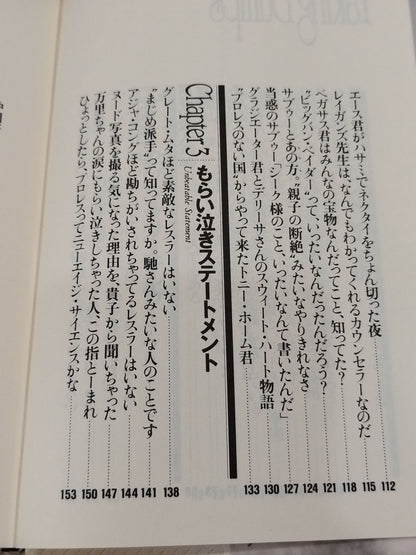 Taking Bumps
エース君がハサミでネクタイをちょん切った夜 112
レイガンズ先生は、なんでもわかってくれるカウンセラーなのだ 115
ペガサス君はみんなの宝物なんだってこと、知ってた? 118
“ビッグバン・ベイダー”って、いったいなんだったんだろう? 121
サブゥーとあの方。“親子の断絶”みたいなやりきれなさ 124
当惑のサブゥー「シーク様のこと、いったいなんて書いたんだ」 127
グラジエーター君とテリーサさんのスウィート・ハート物語 130
“プロレスのない国”からやって来たトニー・ホーム君 133
Chapter 3 もらい泣きステートメント
Unbeatable Statement
グレート・ムタほど素敵なレスラーはいない 138
“まじめ派手”って知ってますか。馳さんみたいな人のことです 141
アジャ・コングほど勘ちがいされちゃってるレスラーはいない 144
ヌード写真を撮る気になった理由を、貴子から聞いちゃった 147
万里ちゃんの涙にもらい泣きしちゃった人、この指とーまれ 150
ひょっとしたら、プロレスってニューエイジ・サイエンスかな 153